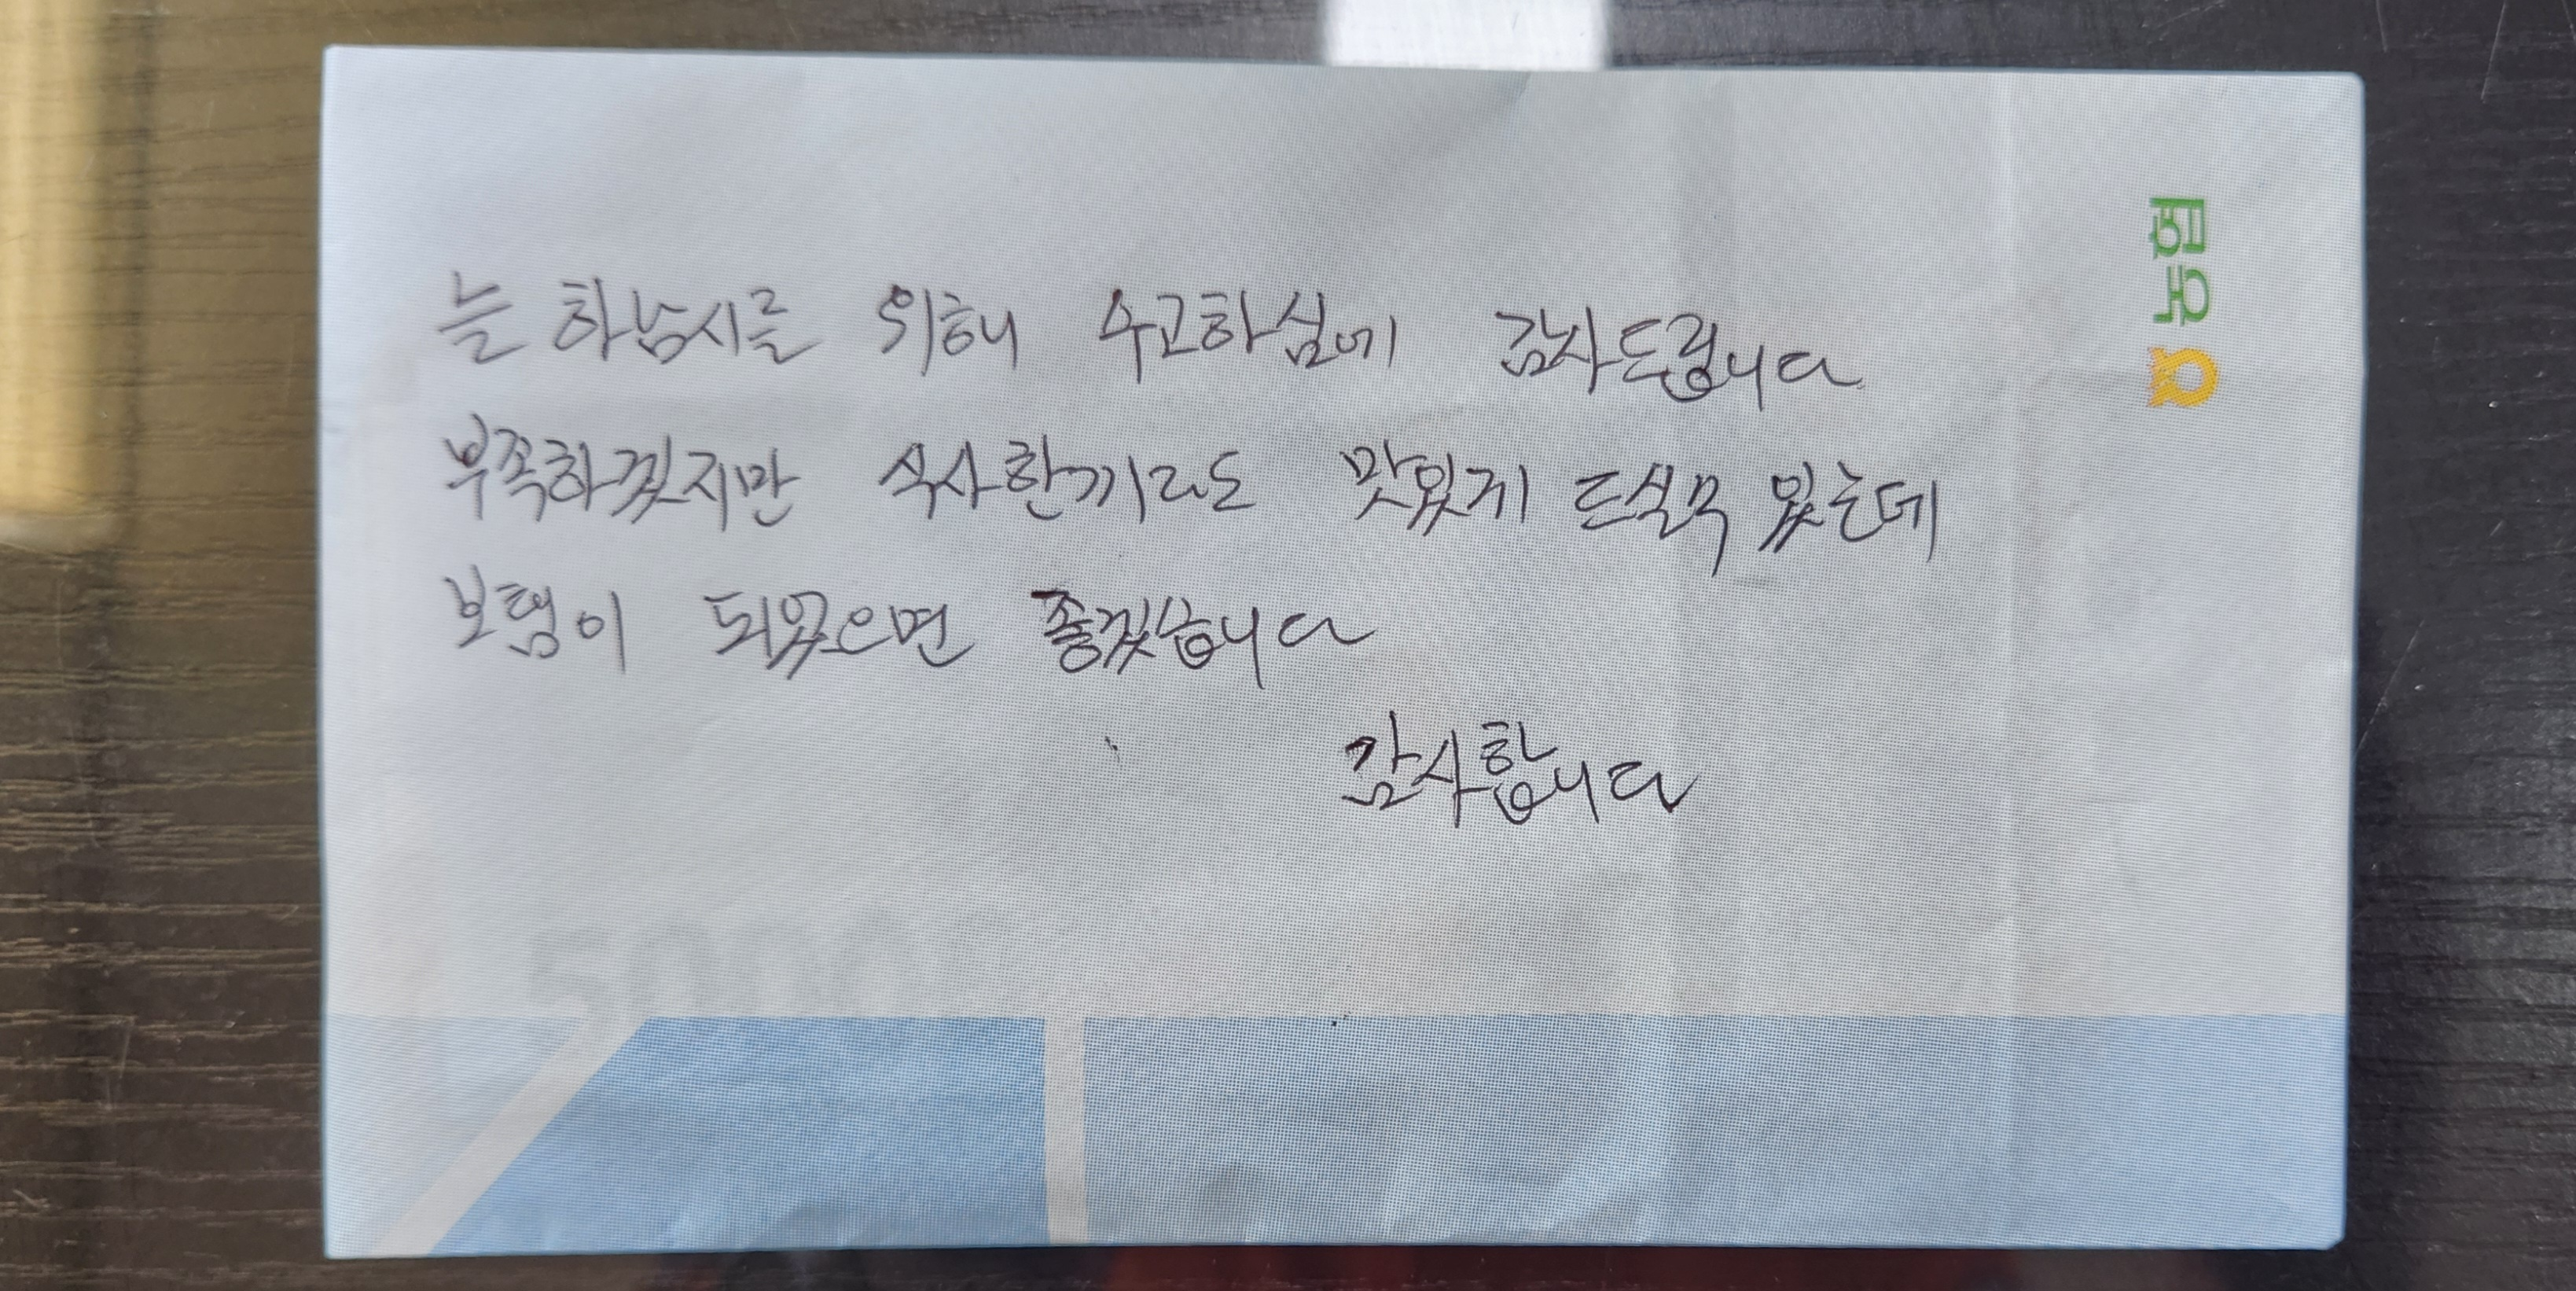 늘 하남시를 위해 수고하심에 감사드립니다
부족하겠지만 식사한끼라도 맛있게 드실수 있는데
보탬이 되었으면 좋겠습니다
감사합니다
5000